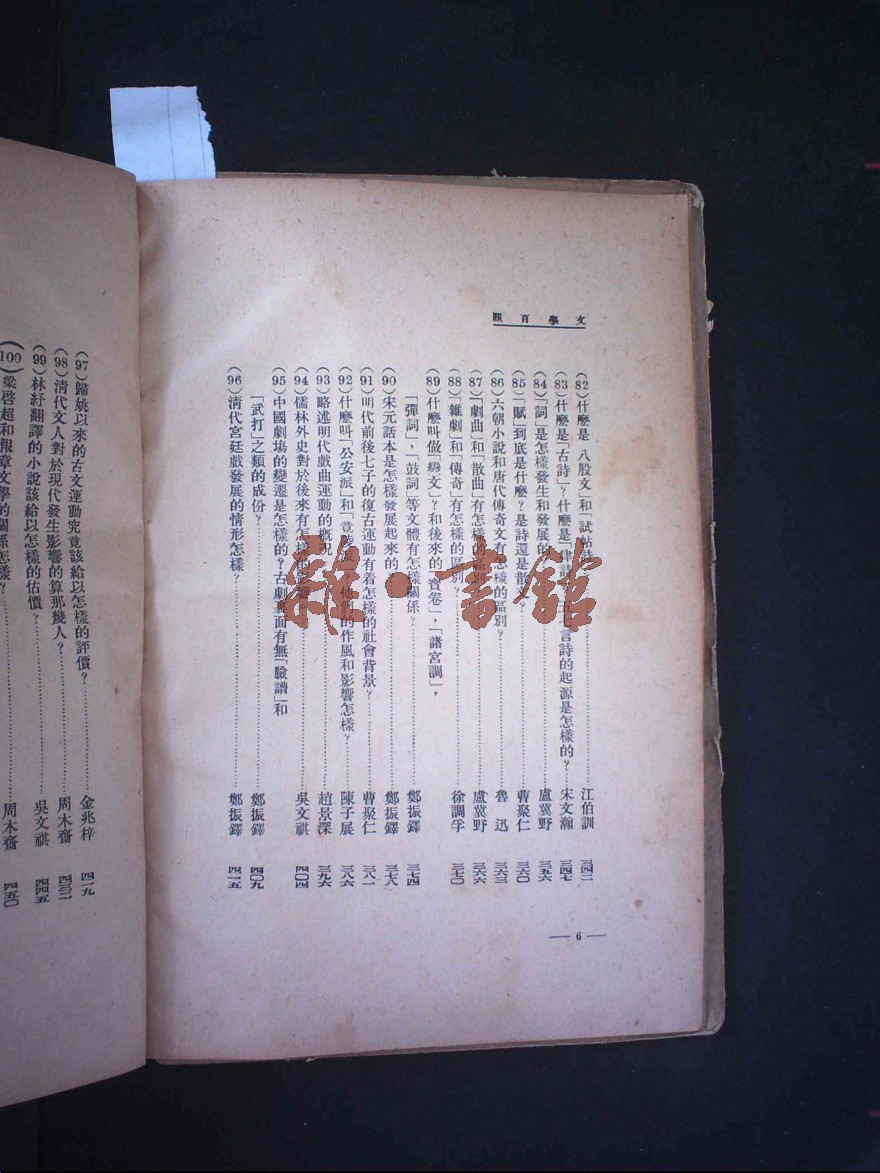 文學百題
(82) 什麼是「八股文」和「試帖詩 江伯訓 三四二
(83) 什麼是「古詩」？什麼是「律詩 五七言詩的起源是怎樣的？ 宋文瀚 三四七
(84) 「詞」是怎樣發生和發展的 盧冀野 三五六
(85) 「賦」到底是什麼？是詩還是散文？ 曹聚仁 三六〇
(86) 六朝小說和唐代傳奇文有怎樣的區別？ 魯迅 三六三
(87) 「劇曲」和「散曲」有怎樣的區別 盧冀野 三六六
(88) 「雜劇」和「傳奇」有怎樣的區別？ 徐調孚 三七〇
(89) 什麼叫做「變文」？和後來的「寶卷」，「諸宮調」，
「彈詞」，「鼓詞」等文體有怎樣關係？ 鄭振鐸 三七四
(90) 宋元話本是怎樣發展起來的 鄭振鐸 三七八
(91) 明代前後七子的復古運動有着怎樣的社會背景？ 曹聚仁 三八一
(92) 什麼叫「公安派」和「竟陵派」 他們的作風和影響怎樣？ 陳子展 三八六
(93) 略述明代戲曲運動的概況 趙景深 三九六
(94) 儒林外史對於後來有怎樣的影響 吳文祺 四〇四
(95) 中國劇場的變遷是怎樣的？古劇裏面有無「臉譜」和
「武打」之類的成份？ 鄭振鐸 四〇九
(96) 清代宮廷戲發展的情形怎樣？ 鄭振鐸 四一五
— 6 —
(97) 歸姚以來的古文運動究竟該給以怎樣的評價？ 金兆梓 四一九
(98) 清代文人對於現代發生影響的算那幾人？ 周木齋 四三二
(99) 林紓翻譯的小說該給以怎樣的估價？ 吳文祺 四四五
(100) 梁啓超和報章文學的關係怎樣？ 周木齋 四五〇
雜·書館